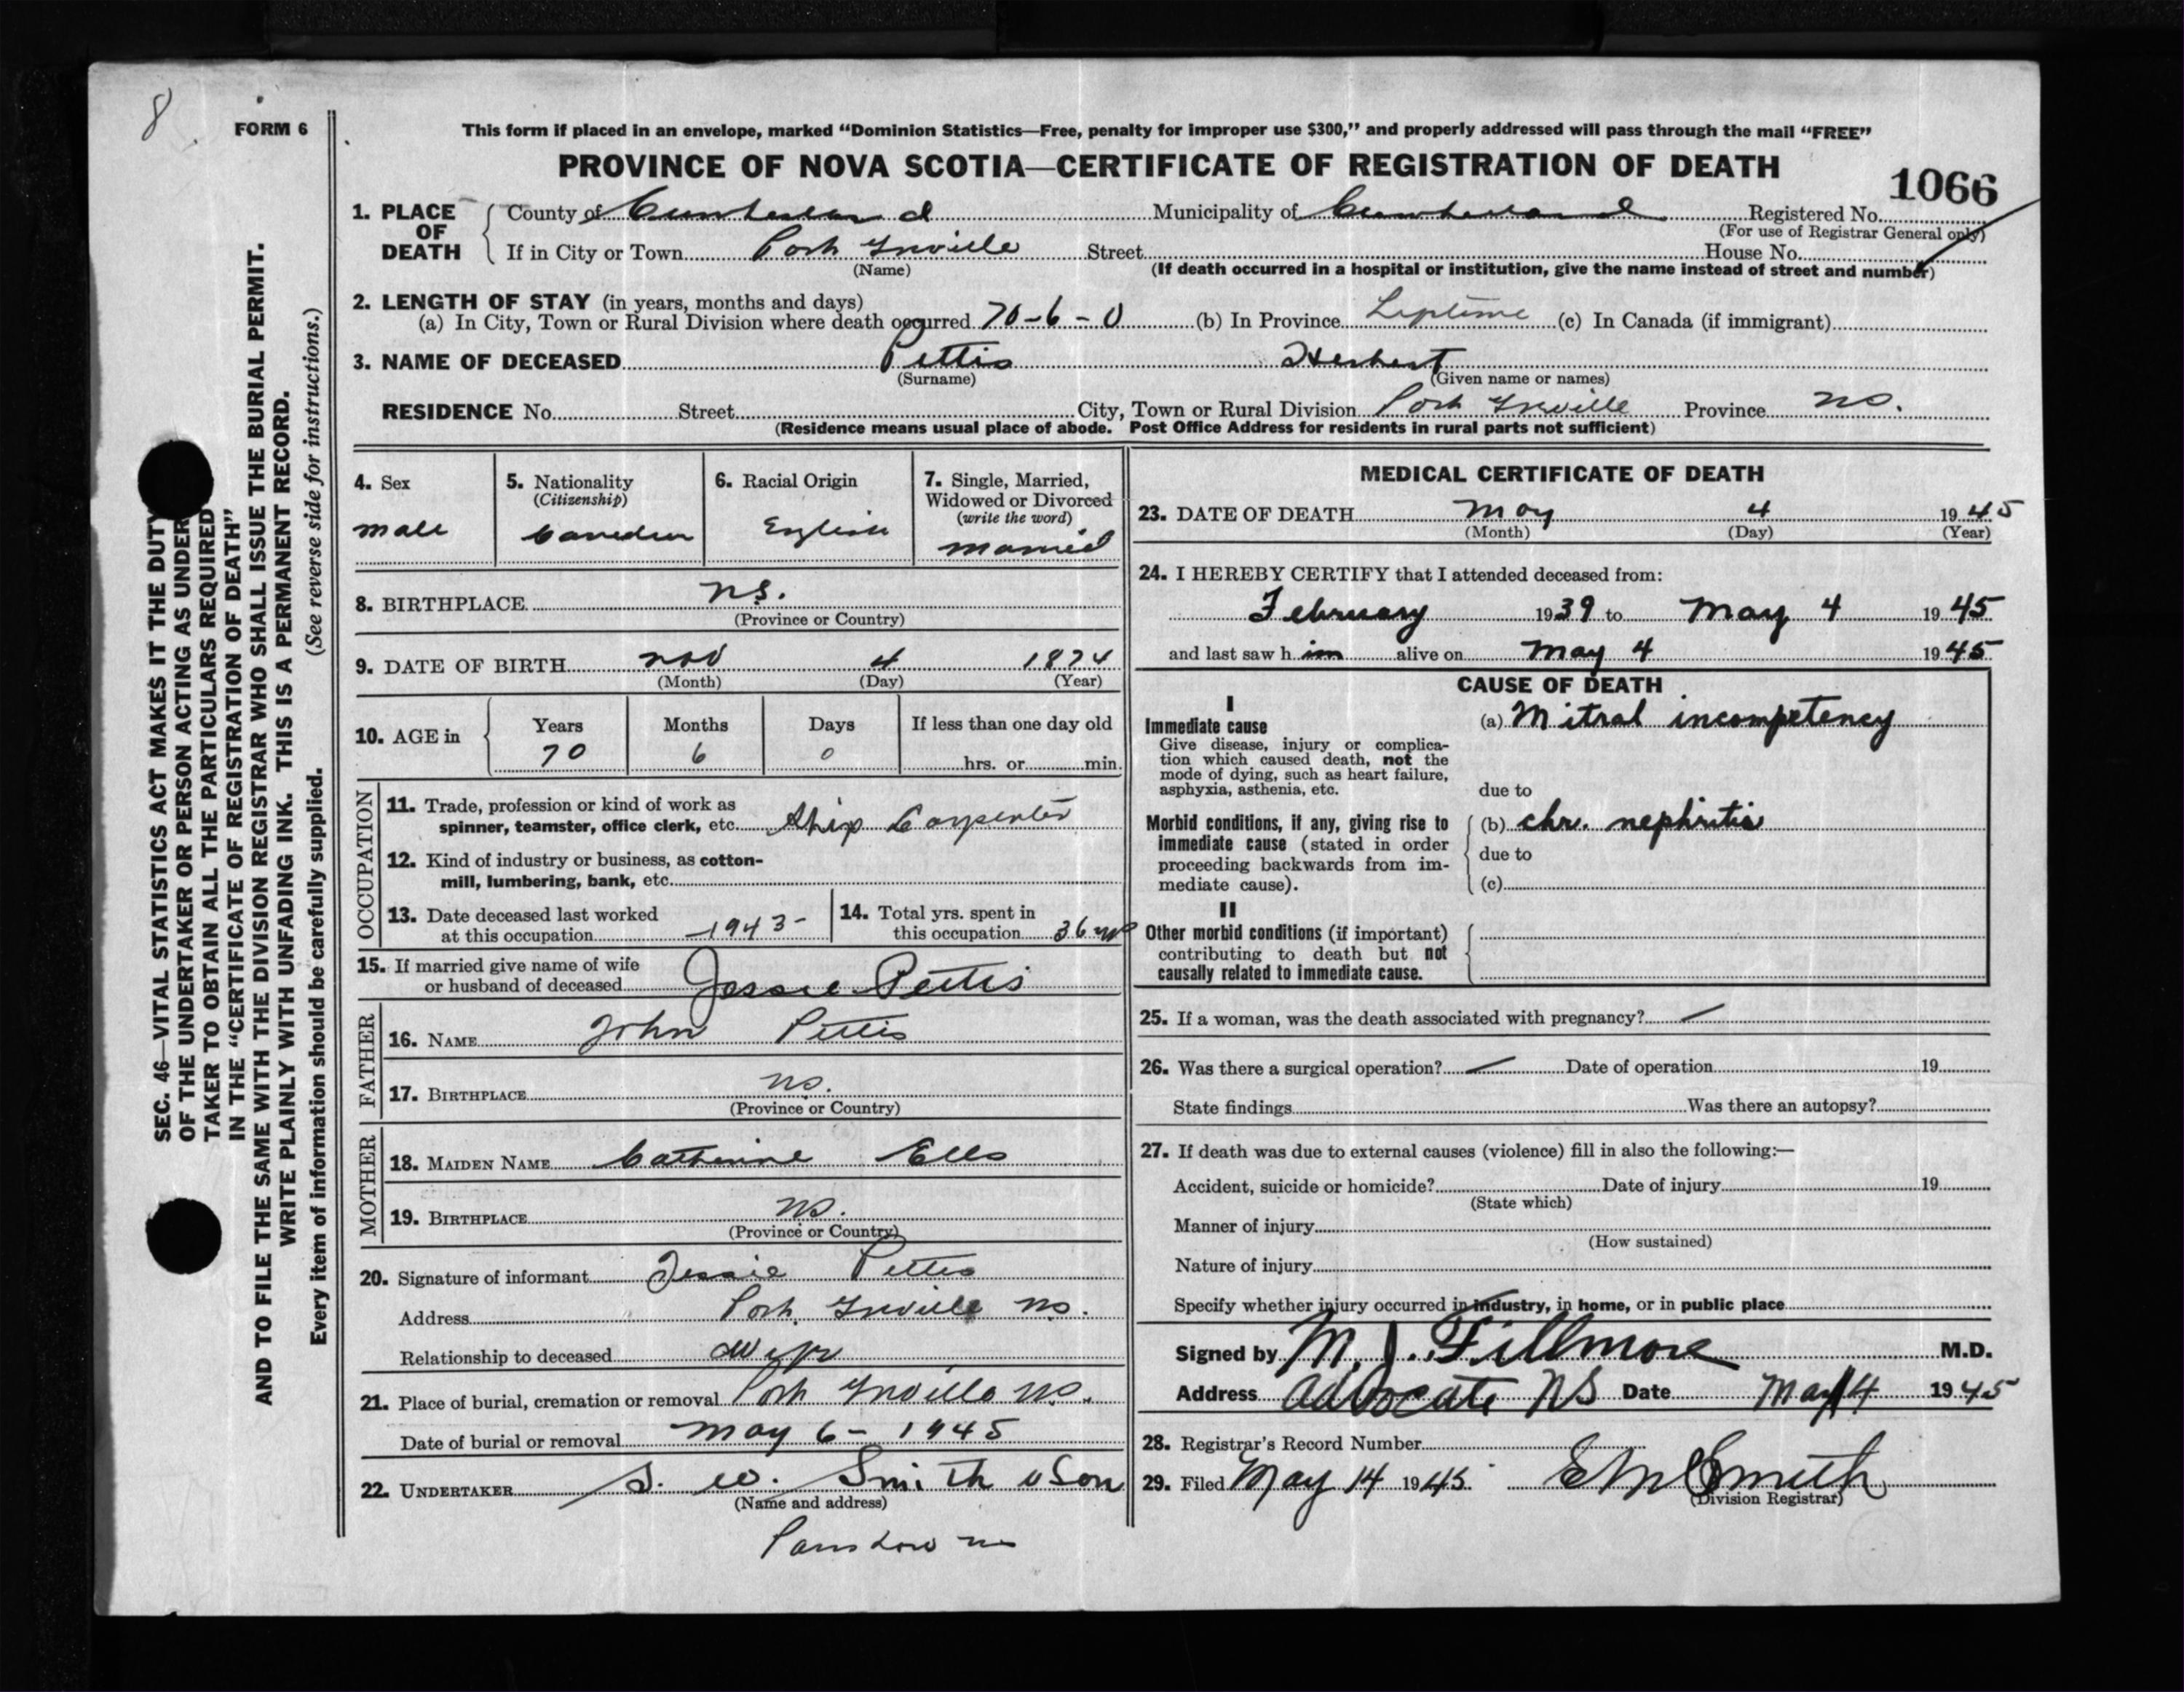 8
FORM 6
This form if placed in an envelope, marked “Dominion Statistics—Free, penalty for improper use $300,” and properly addressed will pass through the mail “FREE”
PROVINCE OF NOVA SCOTIA—CERTIFICATE OF REGISTRATION OF DEATH
1066
1. PLACE OF DEATH County of Cumberland Municipality of Cumberland Registered No.
(For use of Registrar General only)
If in City or Town Port Greville Street House No.
(Name) (If death occurred in a hospital or institution, give the name instead of street and number)
2. LENGTH OF STAY (in years, months and days)
(a) In City, Town or Rural Division where death occurred 70-6-0 (b) In Province Liftime (c) In Canada (if immigrant)
3. NAME OF DECEASED Pettis Herbert
(Surname) (Given name or names)
RESIDENCE No. Street City, Town or Rural Division Port Greville Province NS.
(Residence means usual place of abode. Post Office Address for residents in rural parts not sufficient)
4. Sex 5. Nationality 6. Racial Origin 7. Single, Married,
(Citizenship) Widowed or Divorced
(write the word)
male Canadian English married
8. BIRTHPLACE N.S.
(Province or Country)
9. DATE OF BIRTH Nov 4 1874
(Month) (Day) (Year)
10. AGE in Years Months Days If less than one day old
70 6 0 hrs. or min.
OCCUPATION
11. Trade, profession or kind of work as
spinner, teamster, office clerk, etc. Ship Carpenter
12. Kind of industry or business, as cotton-
mill, lumbering, bank, etc.
13. Date deceased last worked 14. Total yrs. spent in
at this occupation 1943- this occupation 36
15. If married give name of wife
or husband of deceased Jessie Pettis
FATHER
16. NAME John Pettis
17. BIRTHPLACE NS.
(Province or Country)
MOTHER
18. MAIDEN NAME Catherine Ells
19. BIRTHPLACE NS.
(Province or Country)
20. Signature of informant Jessie Pettis
Address Port Greville NS.
Relationship to deceased Wife
21. Place of burial, cremation or removal Port Greville NS.
Date of burial or removal May 6- 1945
22. UNDERTAKER S. W. Smith & Son
(Name and address)
Parrsboro NS
MEDICAL CERTIFICATE OF DEATH
23. DATE OF DEATH May 4 1945
(Month) (Day) (Year)
24. I HEREBY CERTIFY that I attended deceased from:
February 1939 to May 4 1945
and last saw h im alive on May 4 1945
CAUSE OF DEATH
I
Immediate cause (a) Mitral incompetency
Give disease, injury or complica-
tion which caused death, not the
mode of dying, such as heart failure,
asphyxia, asthenia, etc.
due to
Morbid conditions, if any, giving rise to (b) chr. nephritis
immediate cause (stated in order
proceeding backwards from im- due to
mediate cause). (c)
II
Other morbid conditions (if important)
contributing to death but not
causally related to immediate cause.
25. If a woman, was the death associated with pregnancy? —
26. Was there a surgical operation? — Date of operation 19
State findings Was there an autopsy?
27. If death was due to external causes (violence) fill in also the following:—
Accident, suicide or homicide? Date of injury 19
(State which)
Manner of injury
(How sustained)
Nature of injury
Specify whether injury occurred in industry, in home, or in public place
Signed by M. J. Fillmore M.D.
Address Advocate NS Date May 4 1945
28. Registrar's Record Number
29. Filed May 14 1945. E M Smith
(Division Registrar)
SEC. 46—VITAL STATISTICS ACT MAKES IT THE DUTY
OF THE UNDERTAKER OR PERSON ACTING AS UNDER
TAKER TO OBTAIN ALL THE PARTICULARS REQUIRED
IN THE “CERTIFICATE OF REGISTRATION OF DEATH”
AND TO FILE THE SAME WITH THE DIVISION REGISTRAR WHO SHALL ISSUE THE BURIAL PERMIT.
WRITE PLAINLY WITH UNFADING INK. THIS IS A PERMANENT RECORD.
Every item of information should be carefully supplied. (See reverse side for instructions.)